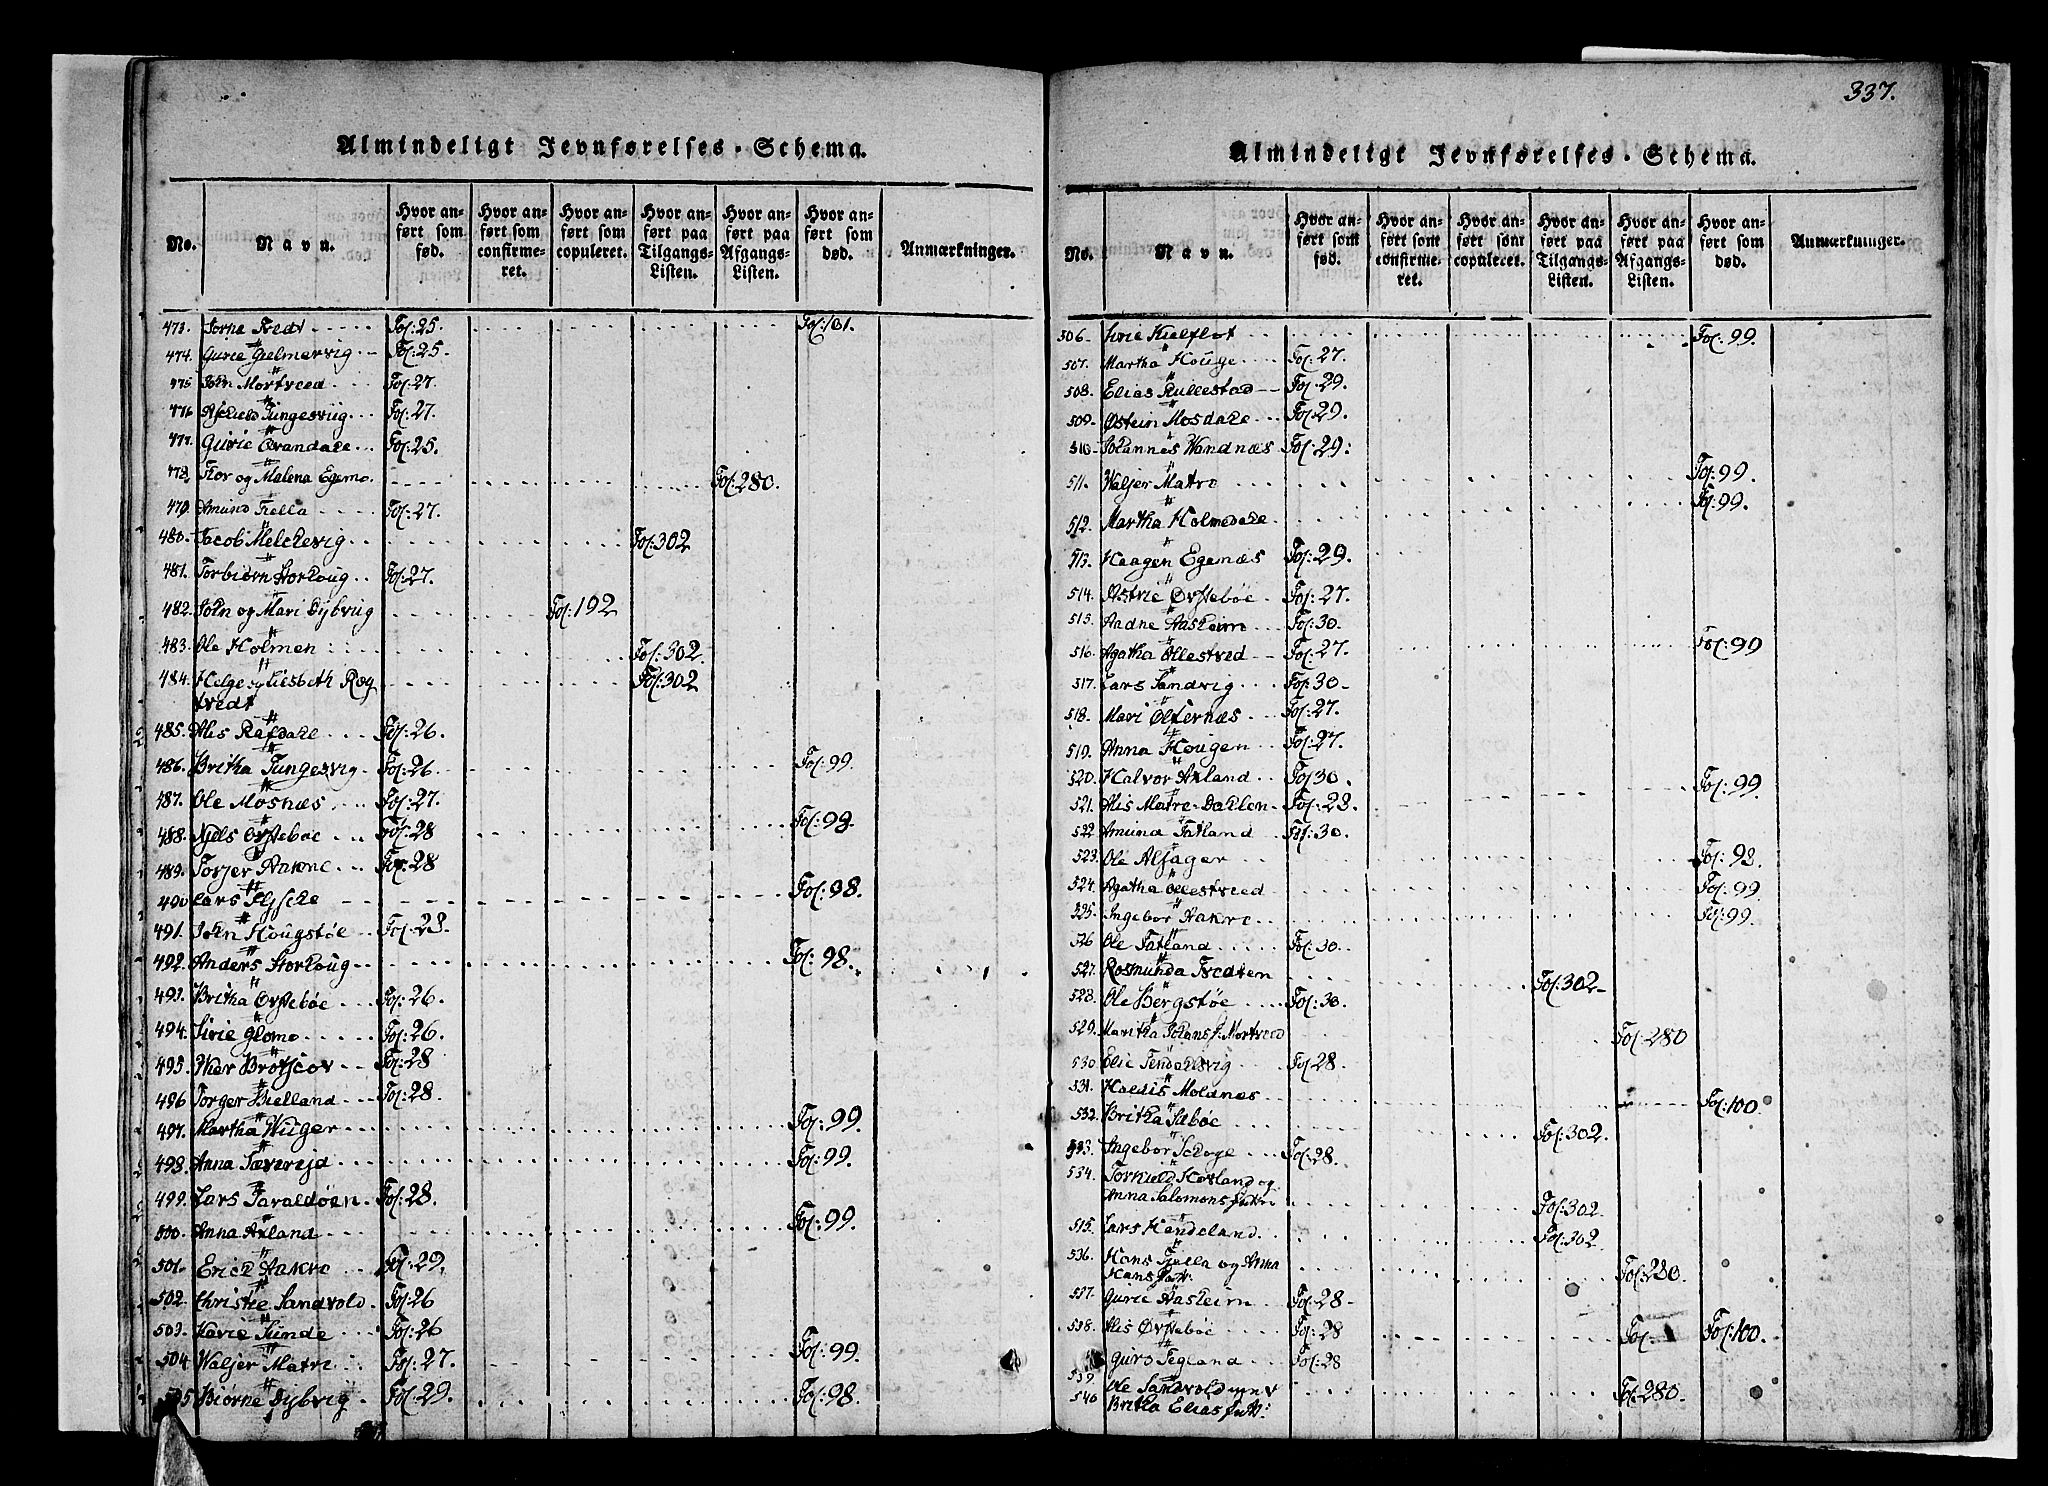 337.
Almindeligt Jevnførelses-Schema.
No. Navn. Hvor anført som fød. Hvor anført som confirmeret. Hvor anført som copuleret. Hvor anført paa Tilgangs-Listen. Hvor anført paa Afgangs-Listen. Hvor anført som død. Anmærkninger.
473. Tredt Fol: 25. Fol: 101.
474. Gurie Gielmervig Fol: 25.
475 John Mortveed Fol: 27.
476 Tungesviig Fol: 27.
477. Gurie Fol: 25.
478. Tor og Malena Egemo Fol: 280.
479. Amund Fiella Fol: 27.
480. Jacob Melchevig Fol: 302
481. Torbiørn Storhoug Fol: 27.
482. John og Mari Dybvig Fol: 192
483. Ole Holmen Fol: 302.
484. Helge og Lisbeth Røg
tvedt Fol: 302
485. Alis Rafdale Fol: 26.
486. Britha Tungesvig Fol: 26 Fol: 99.
487. Ole Mosnæs Fol: 27.
488. Niels Øvstebøe Fol: 28 Fol: 98.
489. Torjer Aakre Fol: 28
490 Lars Flesche Fol: 98.
491. John Hougstøe Fol: 28.
492. Anders Storhoug Fol: 98.
493. Britha Øvstebøe Fol: 26.
494. Sirie Glomo Fol: 26.
495. Iver Brotscov Fol: 28
496 Torger Bielland Fol: 28.
497. Martha Wuger Fol: 99
498. Anna Sævereid Fol: 99.
499. Lars Taraldøen Fol: 28.
500. Anna Axland Fol: 99
501. Erich Aakre Fol: 29.
502. Christie Sandvold Fol: 26
503. Karie Sunde Fol: 26
504 Waljer Matre Fol: 27. Fol: 99.
505 Biørne Dybvig Fol: 29. Fol: 98.
Almindeligt Jevnførelses-Schema.
No. Navn. Hvor anført som fød. Hvor anført som confirmeret. Hvor anført som copuleret. Hvor anført paa Tilgangs-Listen. Hvor anført paa Afgangs-Listen. Hvor anført som død. Anmærkninger.
506. Sirie Fol: 99.
507. Martha Houge Fol: 27.
508. Elias Rullestad Fol: 29.
509. Østein Mosdale Fol: 29.
510. Johannes Vandnæs Fol: 29.
511. Waljer Matre Fol: 99.
512. Martha Holmedale Fol: 99.
513. Haagen Egenæs Fol: 29.
514. Astrie Øvstebøe Fol: 27.
515. Andne Aasheim Fol: 30.
516. Agatha Øllestved Fol: 27. Fol: 99
517. Lars Sandvig Fol: 30
518. Mari Ølfernæs Fol: 27.
519. Anna Hougen Fol: 27.
520. Halvor Axland Fol 30.
521. Alis Matre-Dahlen Fol: 28. Fol: 99
522. Amund Tatland Fol: 30.
523. Ole Alsager Fol: 98.
524. Agatha Øllestveed Fol: 99
525. Ingebor Aakre Fol: 99.
526 Ole Tatland Fol: 30.
527. Rosmunda Tvedten Fol: 302
528. Ole Bergstøe Fol: 30.
529. Maritha Johans: Mortveed Fol: 280
530. Elie Fol 28.
531. Haldis Moldnæs Fol: 100
532. Britha Sæbøe Fol: 302.
533. Ingebor Schoge Fol: 28.
534. Torkield Hovland og
Anna Salomonsdatter Fol: 302.
515. Lars Handeland Fol: 302.
536. Hans Fiella og Anna
Hansdatr. Fol: 280.
537. Gurie Aasheim Fol: 28
538. Alis Øvstebøe Fol: 28 Fol: Fol: 100.
539 Guro Tegland Fol: 28
540 Ole Sandvold
Britha Eliasdatr: Fol: 280.